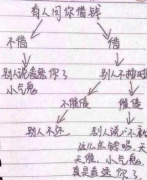 有人问你借钱
不借
借
别人说看透你了
小气鬼
别人不还钱
不催债
催债
别人不还
别人说
这么点钱呢,天
天催,小气鬼,
真是看透你了